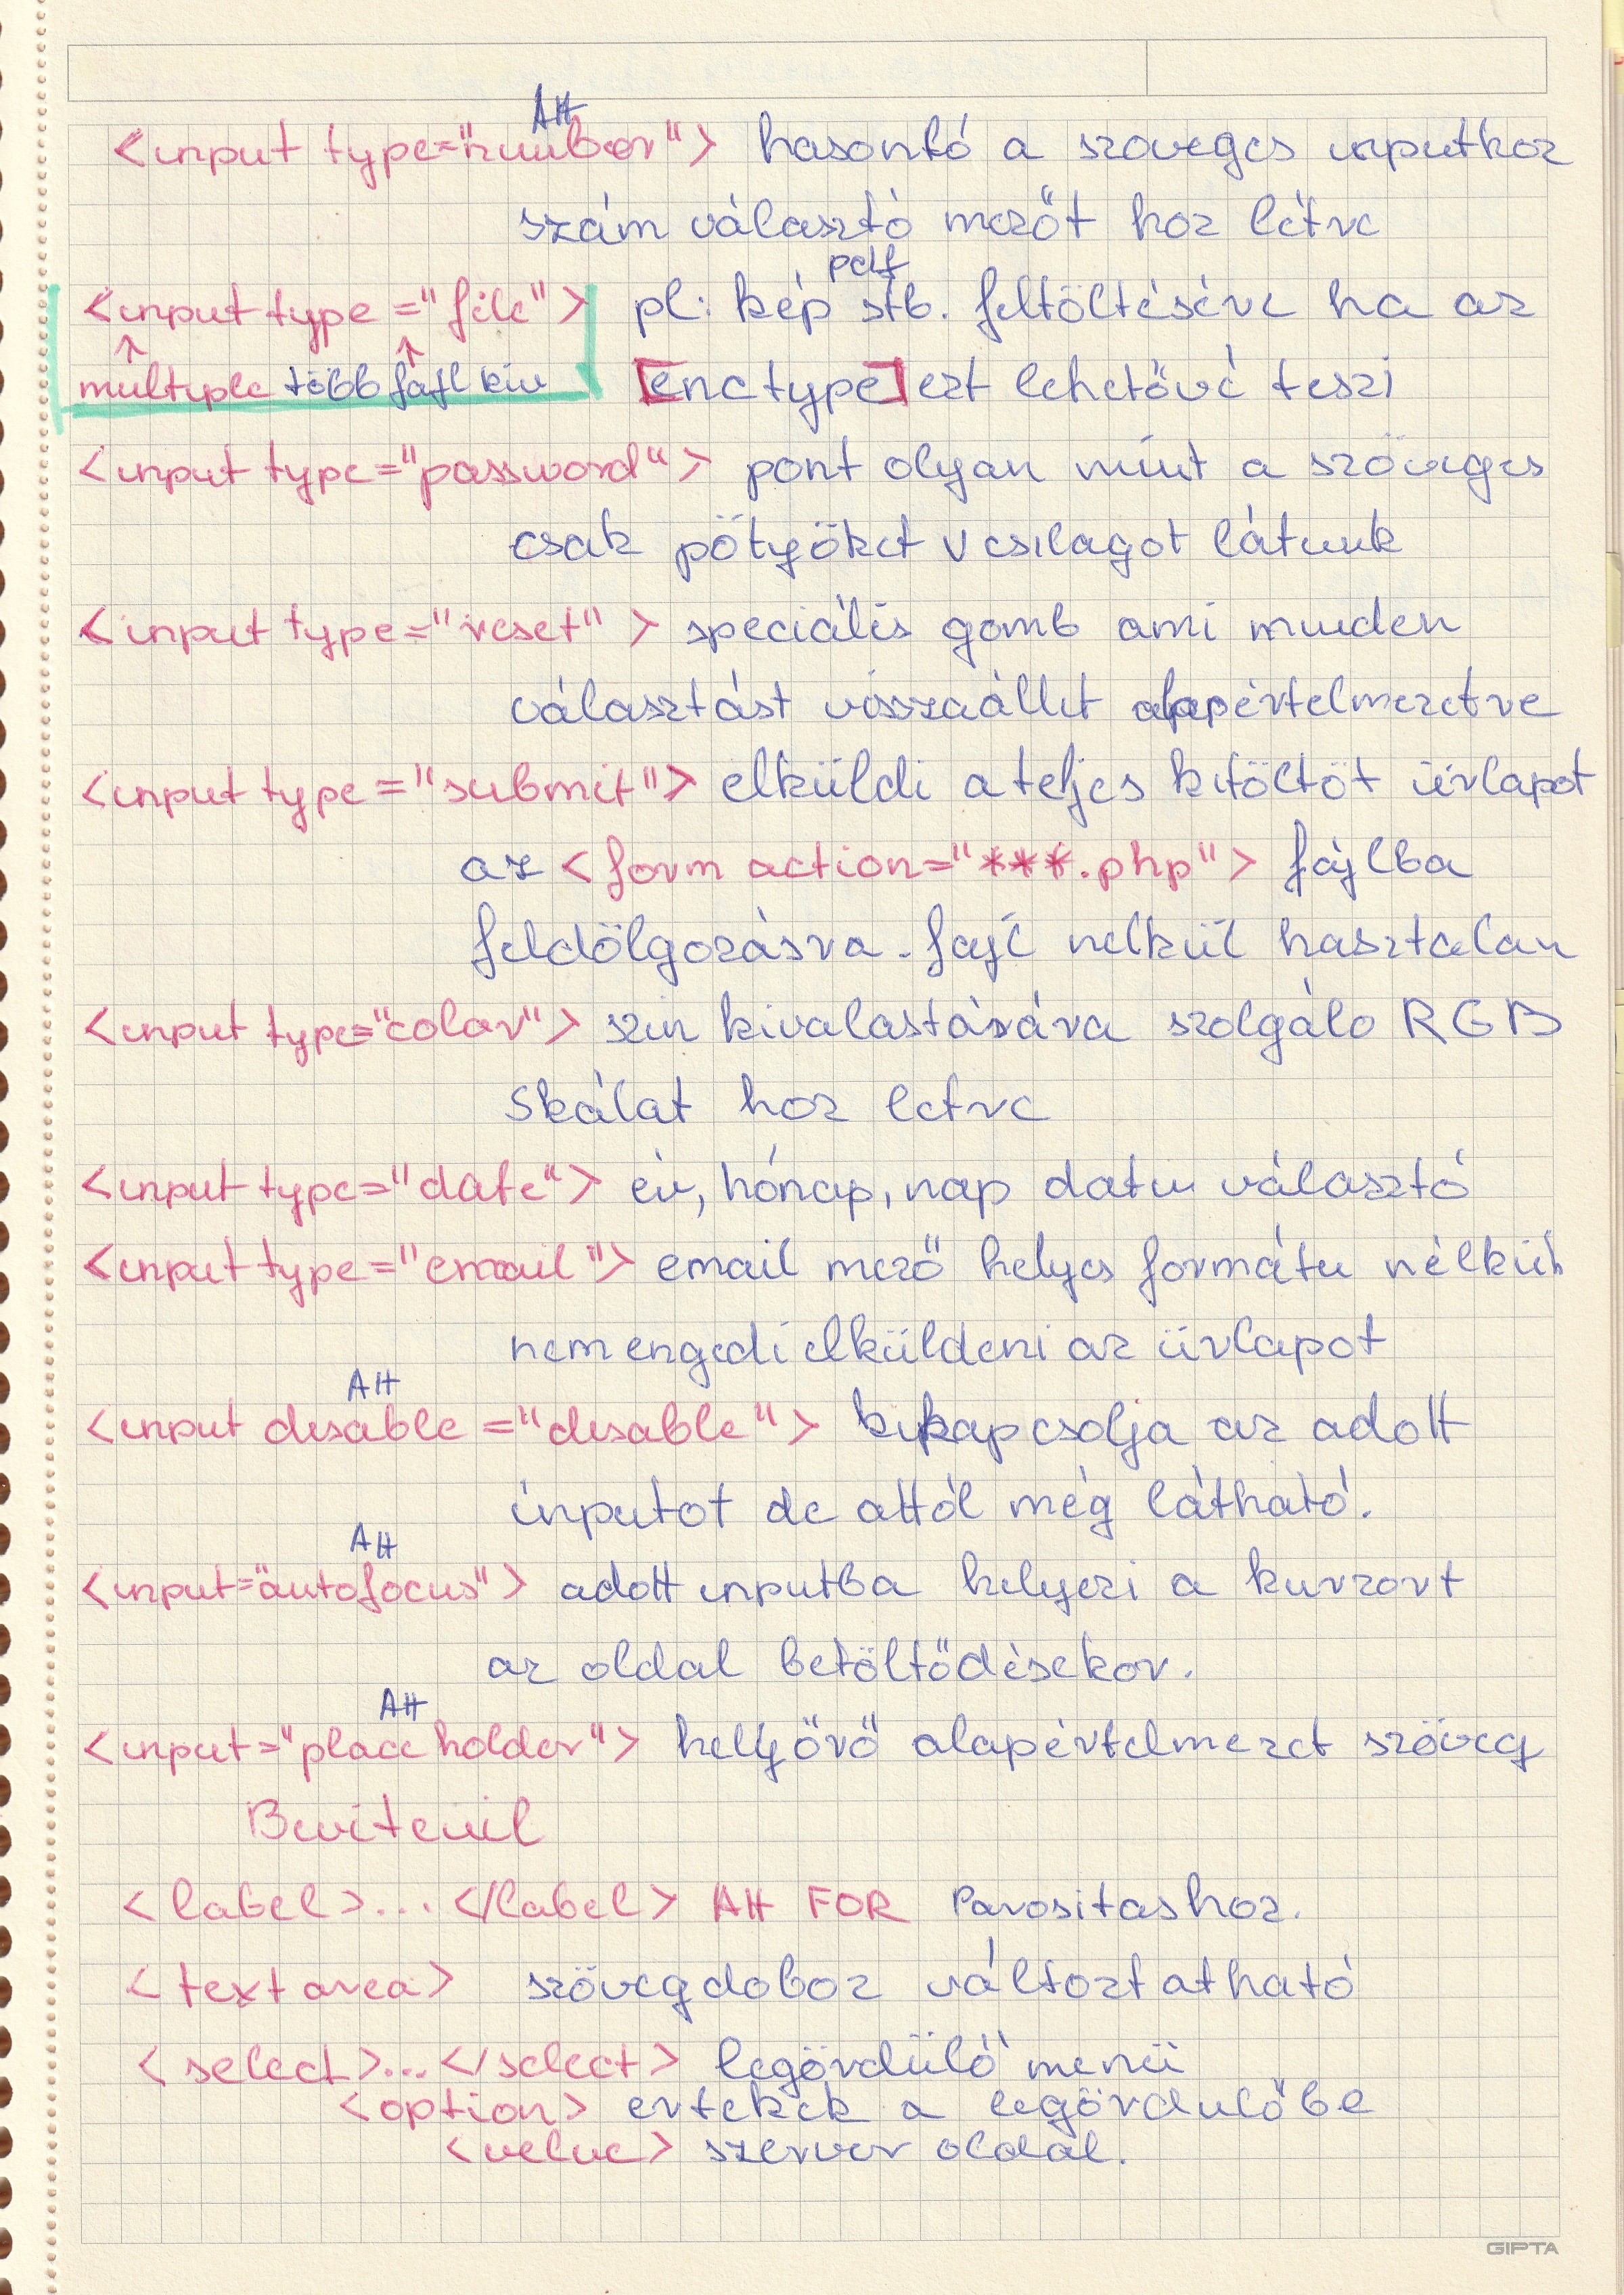 Att
<input type="number"> hasonló a szoveges inputhoz
szám választó mezőt hoz létre
pdf
<input type="file"> pl: kép stb. feltöltésére ha az
multiple több fájl kiv [enctype] ezt lehetővé teszi
<input type="password"> pont olyan mint a szöveges
csak pötyöket v csilagot látunk
<input type="reset"> speciális gomb ami minden
választást visszaállit alapértelmezetre
<input type="submit"> elküldi a teljes kitöltöt űrlapot
az <form action="***.php"> fájlba
feldölgozásra. fájl nélkül hasztalan
<input type="color"> szin kivalastására szolgáló RGB
Skálat hoz letre
<input type="date"> év, hónap, nap datu választó
<input type="email"> email mező helyes formátu nélkül
nem engedi elküldeni az űrlapot
Att
<input disable="disable"> kikapcsolja az adott
inputot de attól még látható.
Att
<input="autofocus"> adott inputba helyezi a kurzort
az oldal betöltődésekor.
Att
<input="place holder"> helyőrő alapértelmezet szöveg
<label>...</label> Att FOR Parositashoz.
<textarea> szövegdoboz változtatható
<select>...</select> legördülő menü
<option> ertekek a legördulőbe
<velue> szerver oldal.
GIPTA